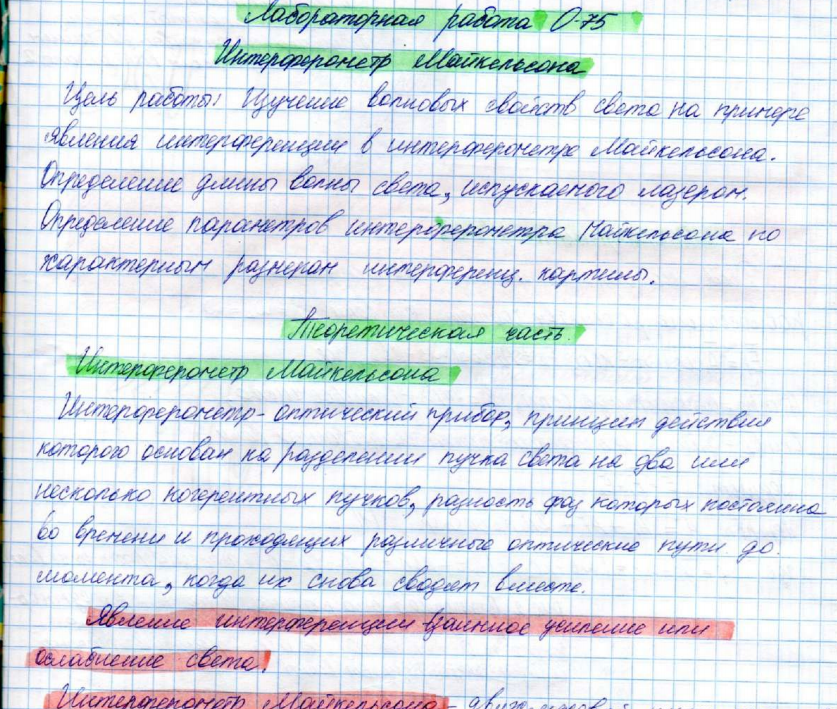 Лабораторная работа О-75
Интерферометр Майкельсона
Цель работы: Изучение волновых свойств света на примере
явления интерференции в интерферометре Майкельсона.
Определение длины волны света, испускаемого лазером.
Определение параметров интерферометра Майкельсона по
характерным размерам интерференц. картины.
Теоретическая часть.
Интерферометр Майкельсона
Интерферометр - оптический прибор, принцип действия
которого основан на разделении пучка света на два или
несколько когерентных пучков, разность фаз которых постоянна
во времени и проходящих различные оптические пути до
момента, когда их снова сводят вместе.
Явление интерференции взаимное усиление или
ослабление света.
Интерферометр Майкельсона -